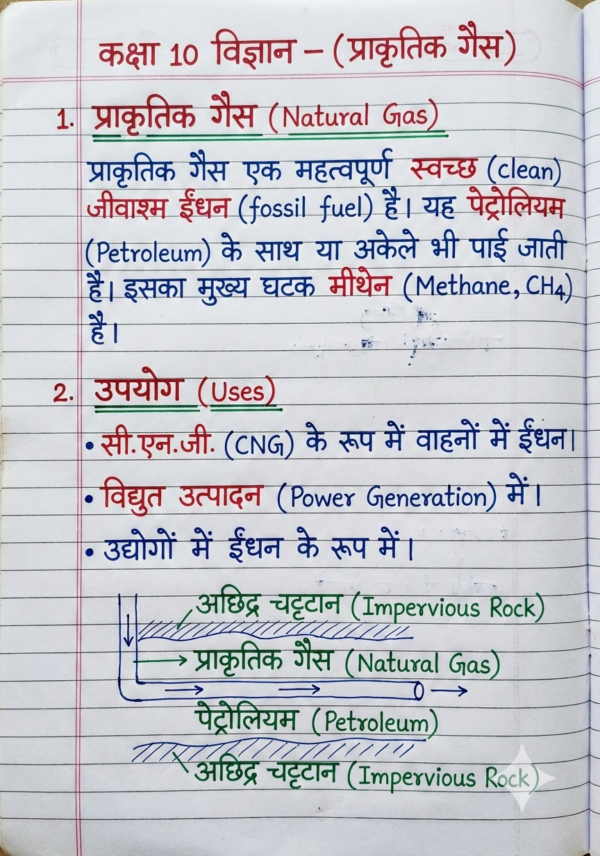 कक्षा 10 विज्ञान – (प्राकृतिक गैस)
1. प्राकृतिक गैस (Natural Gas)
प्राकृतिक गैस एक महत्वपूर्ण स्वच्छ (clean)
जीवाश्म ईंधन (fossil fuel) है। यह पेट्रोलियम
(Petroleum) के साथ या अकेले भी पाई जाती
है। इसका मुख्य घटक मीथेन (Methane, CH4)
है।
2. उपयोग (Uses)
• सी.एन.जी. (CNG) के रूप में वाहनों में ईंधन।
• विद्युत उत्पादन (Power Generation) में।
• उद्योगों में ईंधन के रूप में।
अछिद्र चट्टटान (Impervious Rock)
प्राकृतिक गैस (Natural Gas)
पेट्रोलियम (Petroleum)
अछिद्र चट्टटान (Impervious Rock)